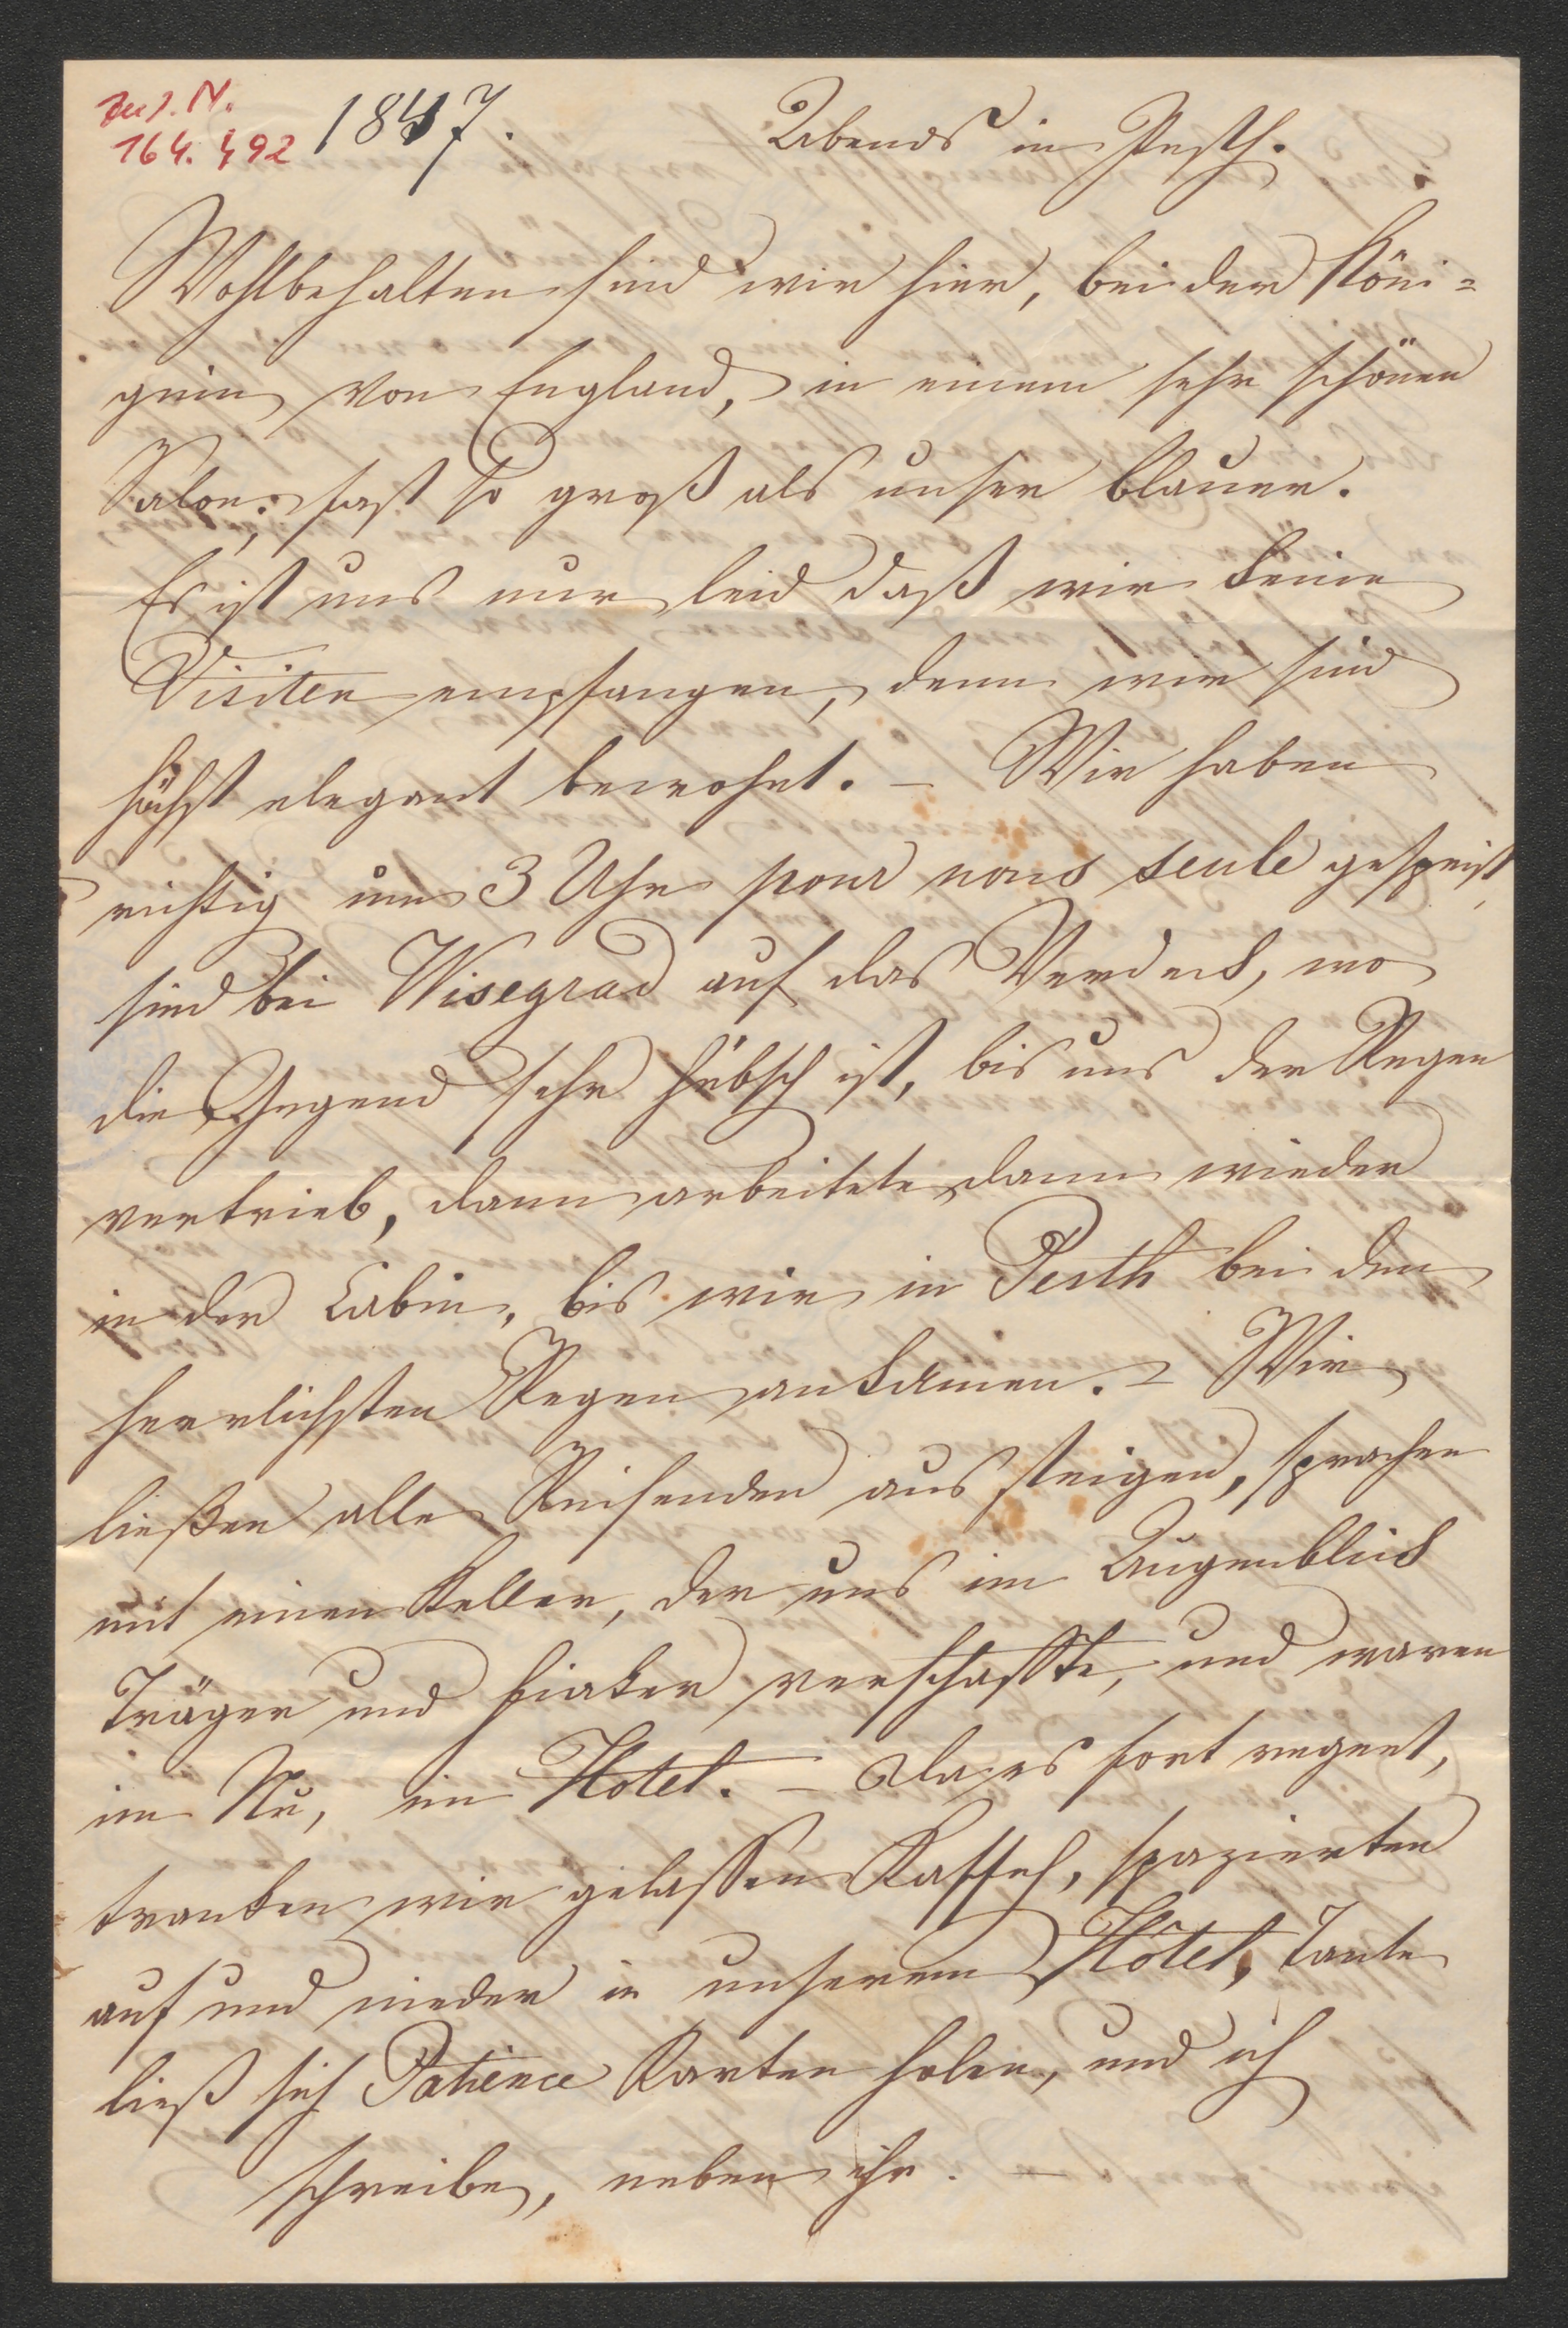 Inv. N.
164.492
1847.
Abends in Pesth.
Wohlbehalten sind wir hier, bei der Köni=
ginn von England, in einem sehr schönen
Salon, fast so groß als unser blauer.
Es ist uns nur leid daß wir keine
Visiten empfangen, denn wir sind
höchst elegant bewohnt. – Wir haben
richtig um 3 Uhr pour nous seule gespeist,
sind bei Wisegrad auf das Verdeck, wo
die Gegend sehr hübsch ist, bis uns der Regen
vertrieb, dann arbeitete dann wieder
in der Cabin, bis wir in Pesth bei den
herrlichsten Regen ankamen. – Wir
ließen alle Reisenden aussteigen, sprachen
mit einen Kellner, der uns im Augenblick
Träger und Fiaker verschaffte, und waren
im Nu, im Hotel. – Da es fort regnet,
tranken wir gelassen Kaffeh, spazierten
auf und nieder in unserem Hôtel, Tante
ließ sich Patience Karten holen, und ich
schreibe, neben ihr. –